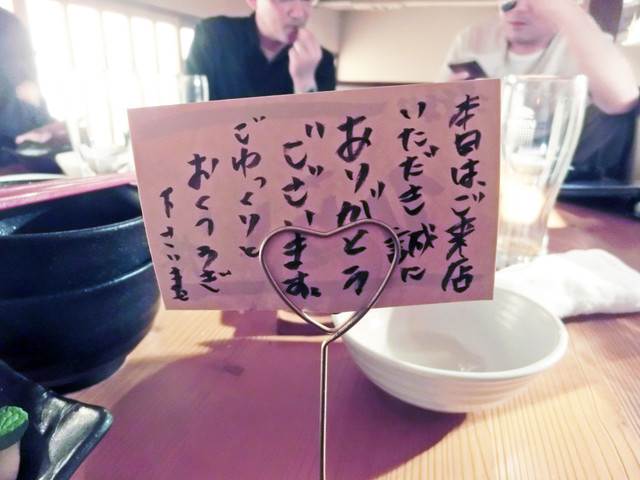 本日は、ご来店
いただき 誠に
ありがとう
ございます。
ごゆっくりと
おくつろぎ
下さいませ